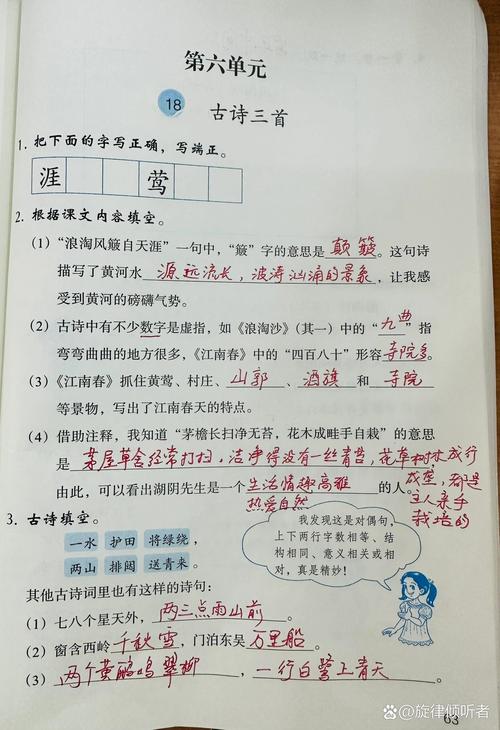 第六单元
18 古诗三首
1. 把下面的字写正确，写端正。
涯 莺
2. 根据课文内容填空。
（1）“浪淘风簸自天涯”一句中，“簸”字的意思是 颠簸。这句诗
描写了黄河水 源远流长，波涛汹涌的景象，让我感
受到黄河的磅礴气势。
（2）古诗中有不少数字是虚指，如《浪淘沙》（其一）中的“九曲”指
弯弯曲曲的地方很多，《江南春》中的“四百八十”形容寺院多。
（3）《江南春》抓住黄莺、村庄、山郭、酒旗 和 寺院
等景物，写出了江南春天的特点。
（4）借助注释，我知道“茅檐长扫净无苔，花木成畦手自栽”的意思
是 茅屋草舍经常打扫，洁净得没有一丝青苔，花草树木成行
成垄，都是
主人亲手
栽培的
由此，可以看出湖阴先生是一个 生活情趣高雅 的人。
热爱自然
3. 古诗填空。
一水 护田 将绿绕，
两山 排闼 送青来。
我发现这是对偶句，
上下两行字数相等、结
构相同、意义相关或相
对，真是精妙！
其他古诗词里也有这样的诗句：
（1）七八个星天外，两三点雨山前。
（2）窗含西岭千秋雪，门泊东吴万里船。
（3）两个黄鹂鸣翠柳，一行白鹭上青天。
63
@旋律倾听者